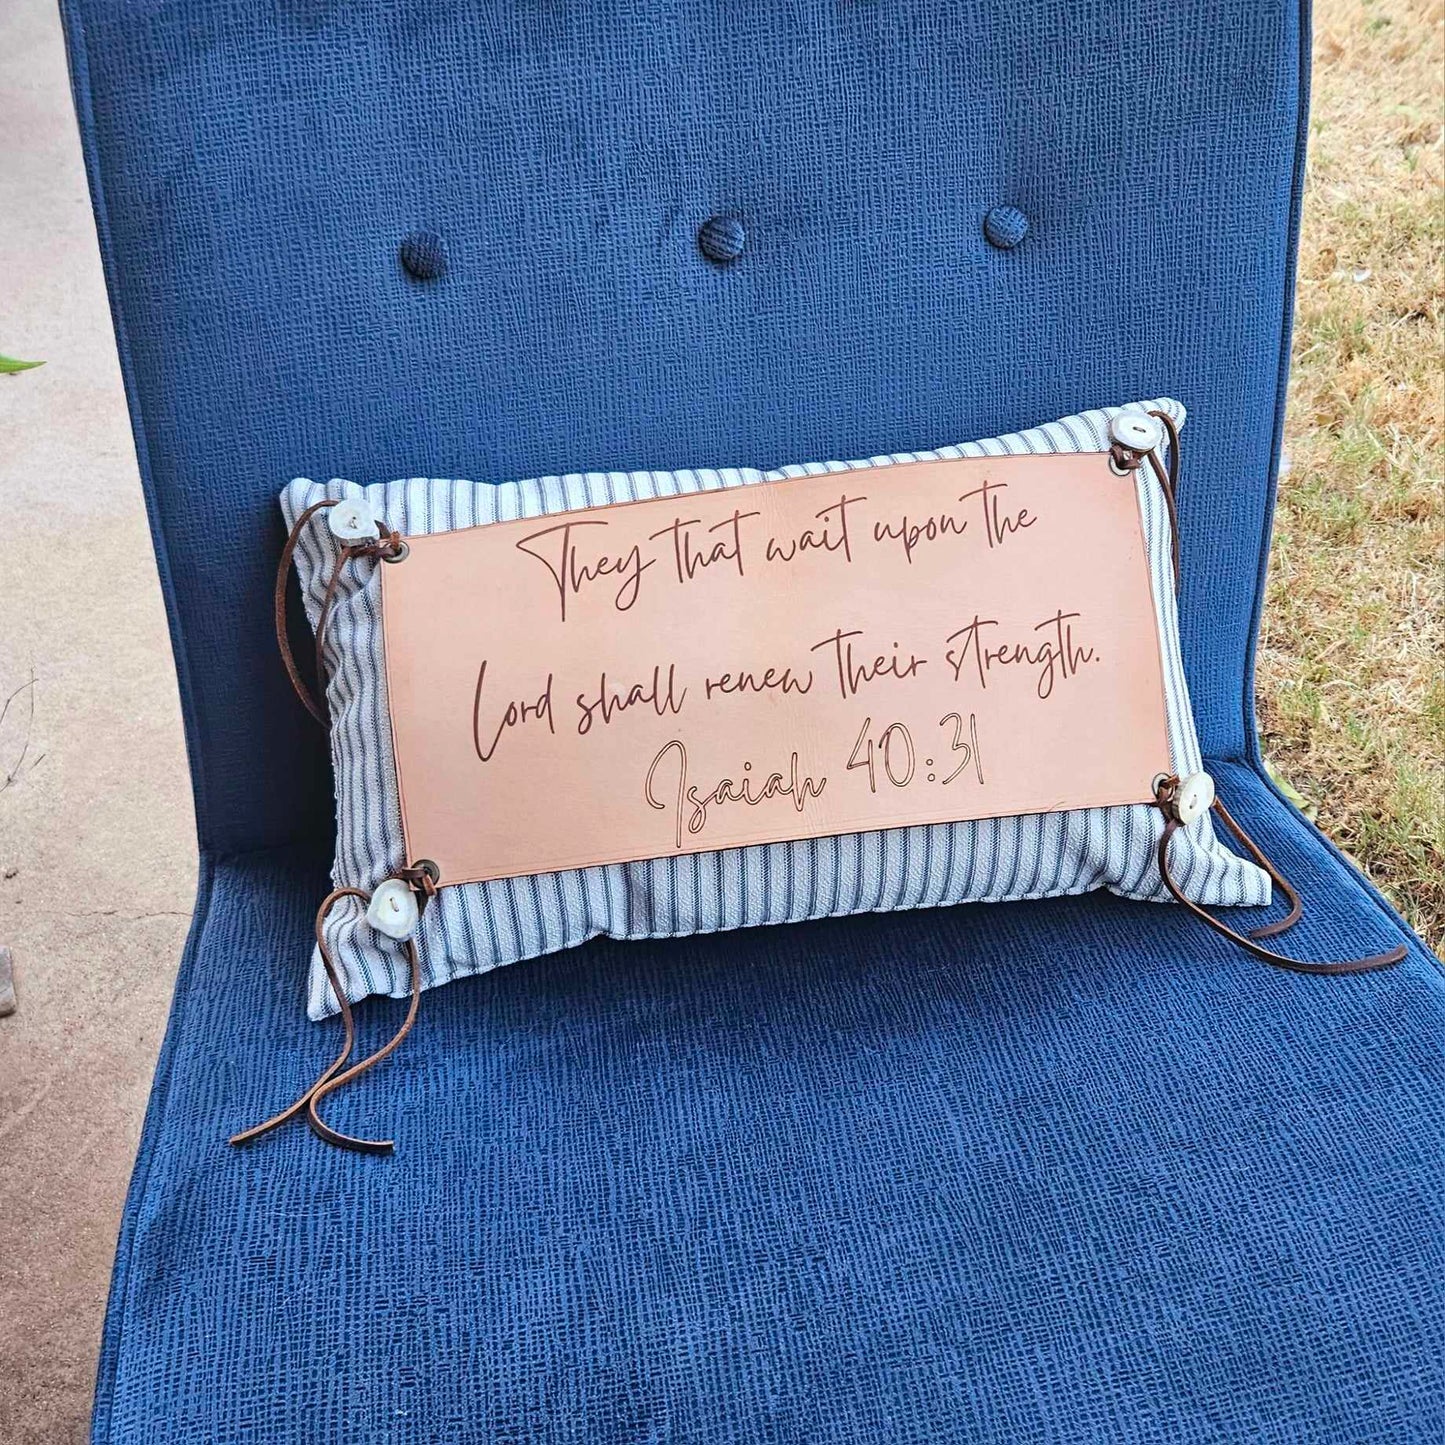 They that wait upon the
Lord shall renew their strength.
Isaiah 40:31